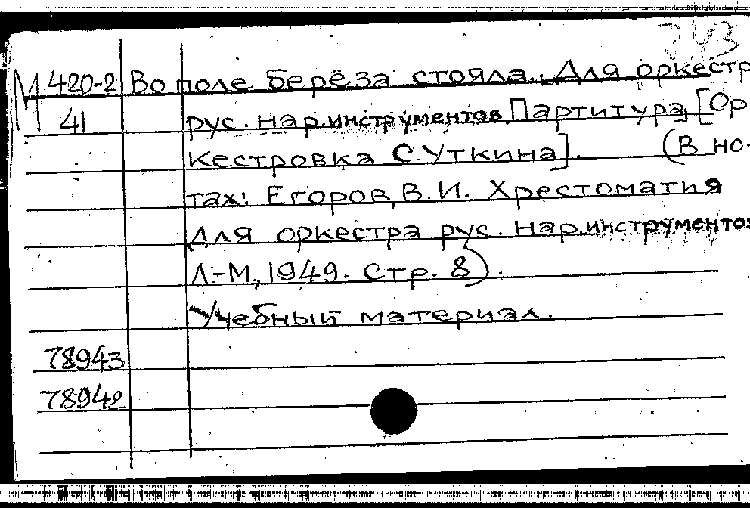 343
М 420-2 Во поле берёза стояла. Для оркестр
41 рус. нар.инструментов. Партитура. [Ор
кестровка С.Уткина]. (В но-
тах: Егоров, В.И. Хрестоматия
для оркестра рус. нар.инструментов
Л.-М., 1949. Стр. 8).
Учебный материал.
78943
78942